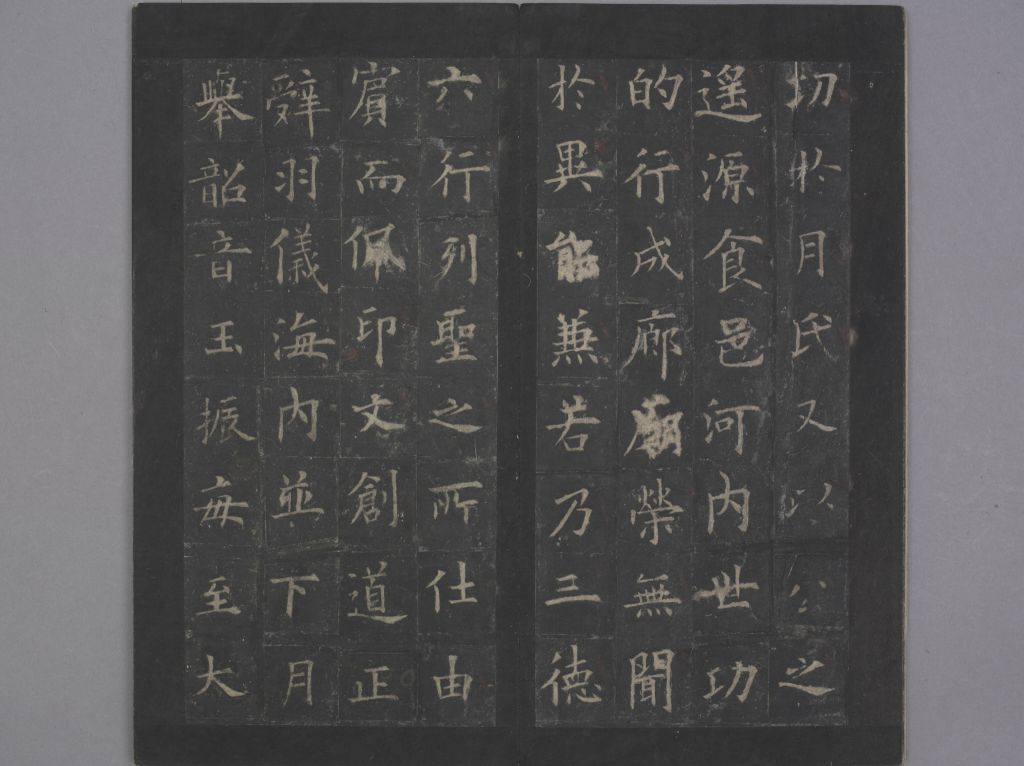 切於月氏又以公之
遥源食邑河内世功
的行成廊廟榮無聞
於異能兼若乃三德
六行列聖之所仕由
賔而佩印文創道正
辤羽儀海内並下月
舉韶音玉振毎至大